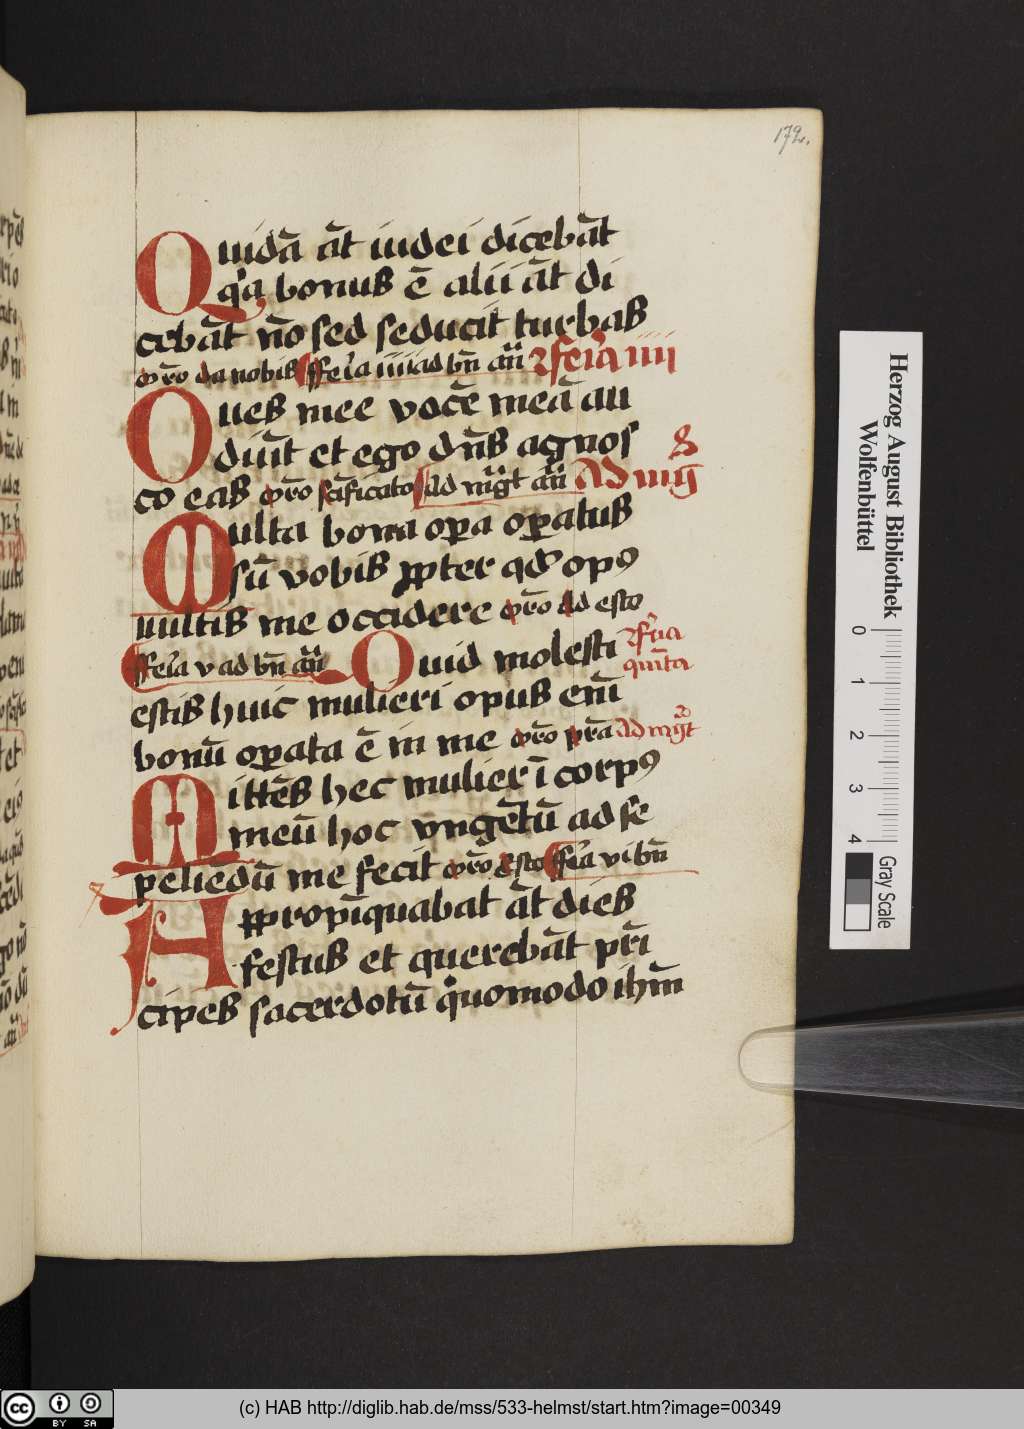 172.
Quidā āt iudei dicebāt
q̇a bonus ē alii āt di
cebāt nō sed seducit turbas
or̄o da nobis ffer̄ia iiii ad bn̄ an̄ feria iiii
Oues mee vocē meā au
diūt et ego dn̄s agnos
co eas or̄o sc̄ificato ad mg̃t an̄ Ad mg̃
Multa bona oꝑa oꝑatus
sū vobis ꝓpter qd opꝰ
uultis me occidere or̄o ad esto
ffer̄ia v ad bn̄ an̄ Quid molesti fr̄ia
quīta
estis huic mulieri opus em̄
bonū oꝑata ē in me or̄o pr̄a Ad mg̃t
Mittēs hec mulier ī corpꝰ
meū hoc vngētū ad se
peliēdū me fecit or̄o Esto ffer̄ia vi bn̄
Appropīquabat āt dies
festus et querebāt pri
cipes sacerdotū q̇uomodo ihm̄
Herzog August Bibliothek
Wolfenbüttel
0 1 2 3 4
Gray Scale
cc BY SA
(c) HAB http://diglib.hab.de/mss/533-helmst/start.htm?image=00349